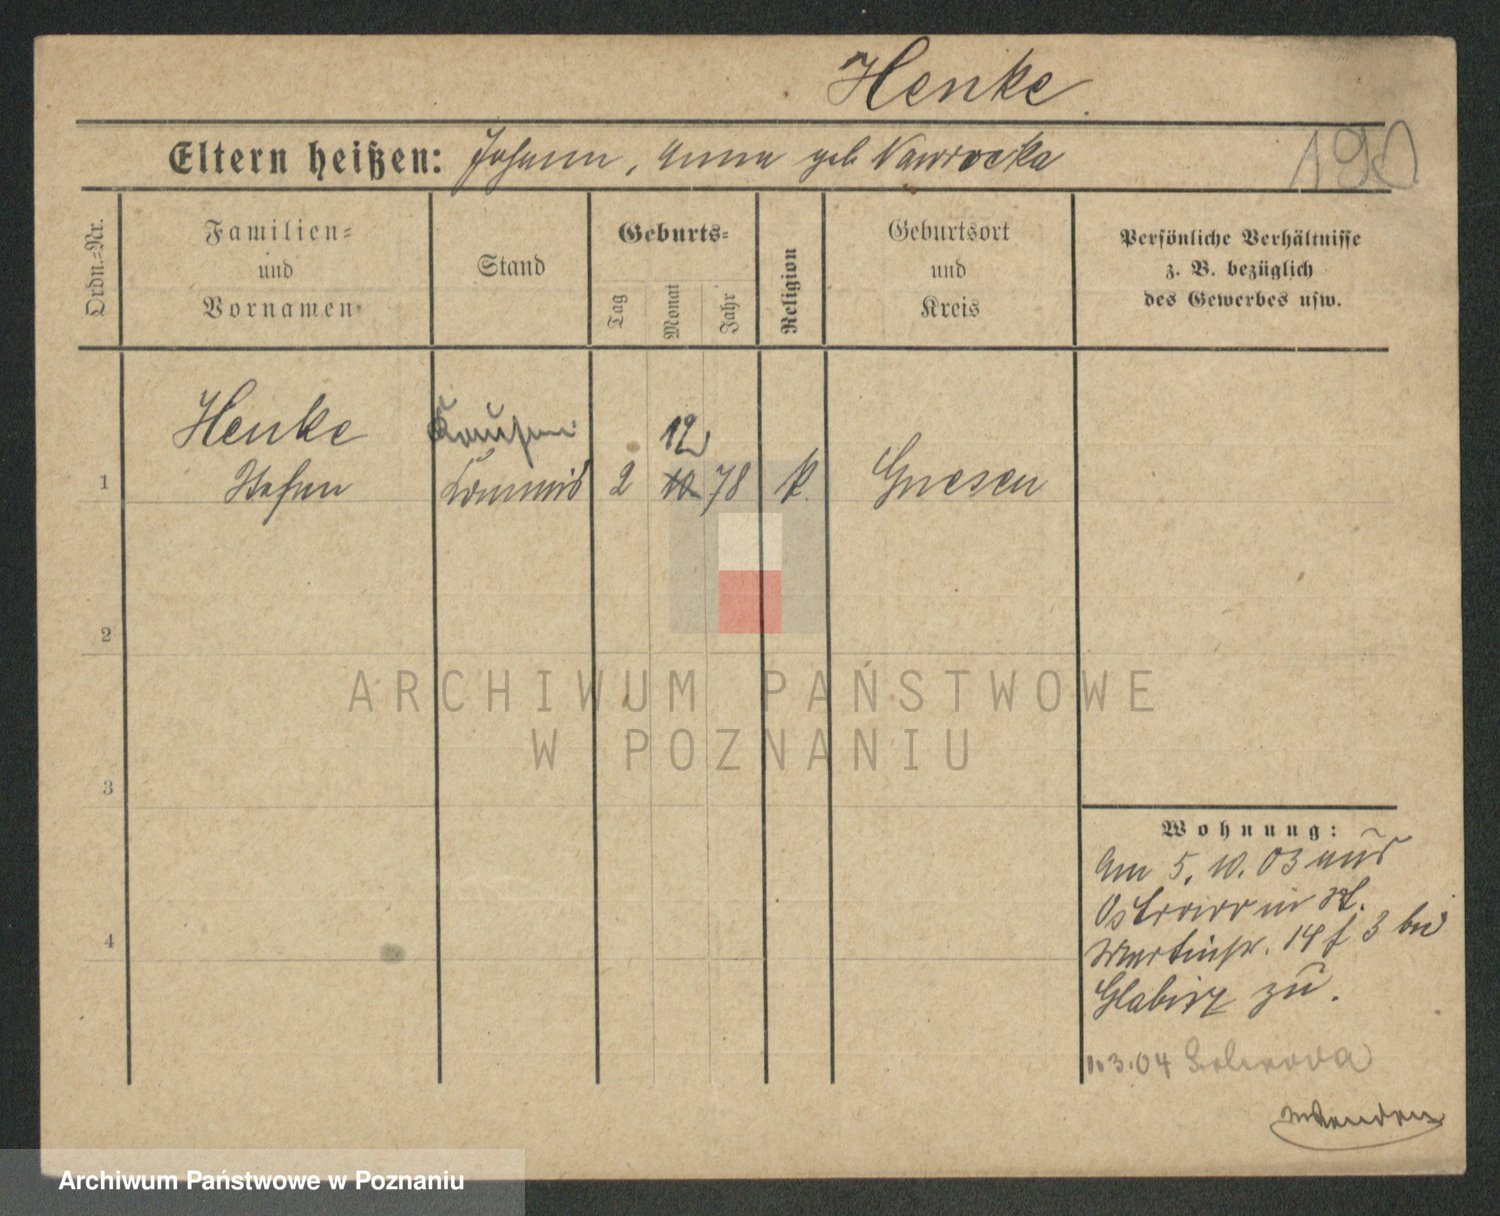 Henke
Eltern heißen: Johann, Anna geb Nawrocka
190
Ordn.=Nr.
Familien=
und
Vornamen
Stand
Geburts=
Tag
Monat
Jahr
Religion
Geburtsort
und
Kreis
Persönliche Verhältnisse
z. B. bezüglich
des Gewerbes usw.
Henke
Kaufm.
12
1
Stefan
Kommis
2
10
78
k.
Gnesen
2
3
4
ARCHIWUM PAŃSTWOWE
W POZNANIU
Wohnung:
Am 5. 10. 03 aus
Ostrowo in St.
Martinstr. 14 f 3 bei
zu.
3.04
Archiwum Państwowe w Poznaniu